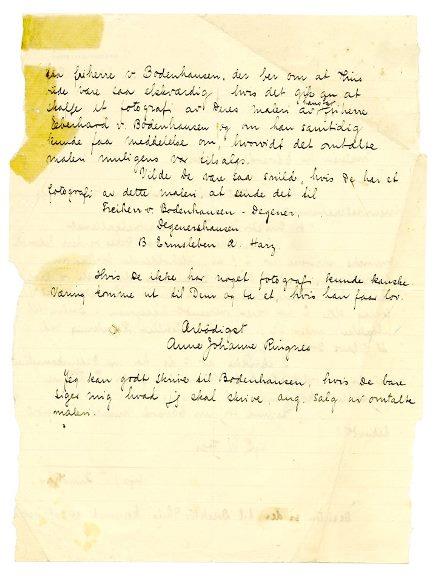 fra friherre v. Bodenhausen, der ber om at Thiis
vilde være saa elskværdig, hvis det gik an at
skaffe et fotografi av Deres maleri av kansler Friherre
Eberhard v. Bodenhausen og om han samtidig
kunde faa meddelelse om, hvorvidt det omtalte
maleri muligens var tilsalgs.
Vilde De være saa snild, hvis De har et
fotografi av dette maleri, at sende det til
Freiherr v. Bodenhausen - Degener,
Degenershausen
B. Ermsleben a. Harz
Hvis De ikke har noget fotografi kunde kanske
Væring komme ut til Dem og ta et, hvis han faar lov.
Ærbødigst
Anne Johanne Ringnes
Jeg kan godt skrive til Bodenhausen, hvis De bare
siger mig hvad jeg skal skrive, ang. salg av omtalte
maleri.